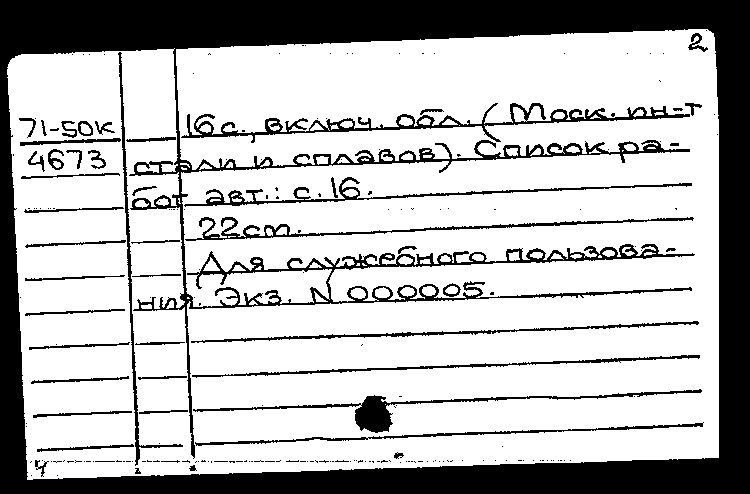 2
71-50к 16 с., включ. обл. (Моск. ин-т
4673 стали и сплавов). Список ра-
бот авт.: с. 16.
22 cm.
Для служебного пользова-
ния. Экз. N 000005.
ч